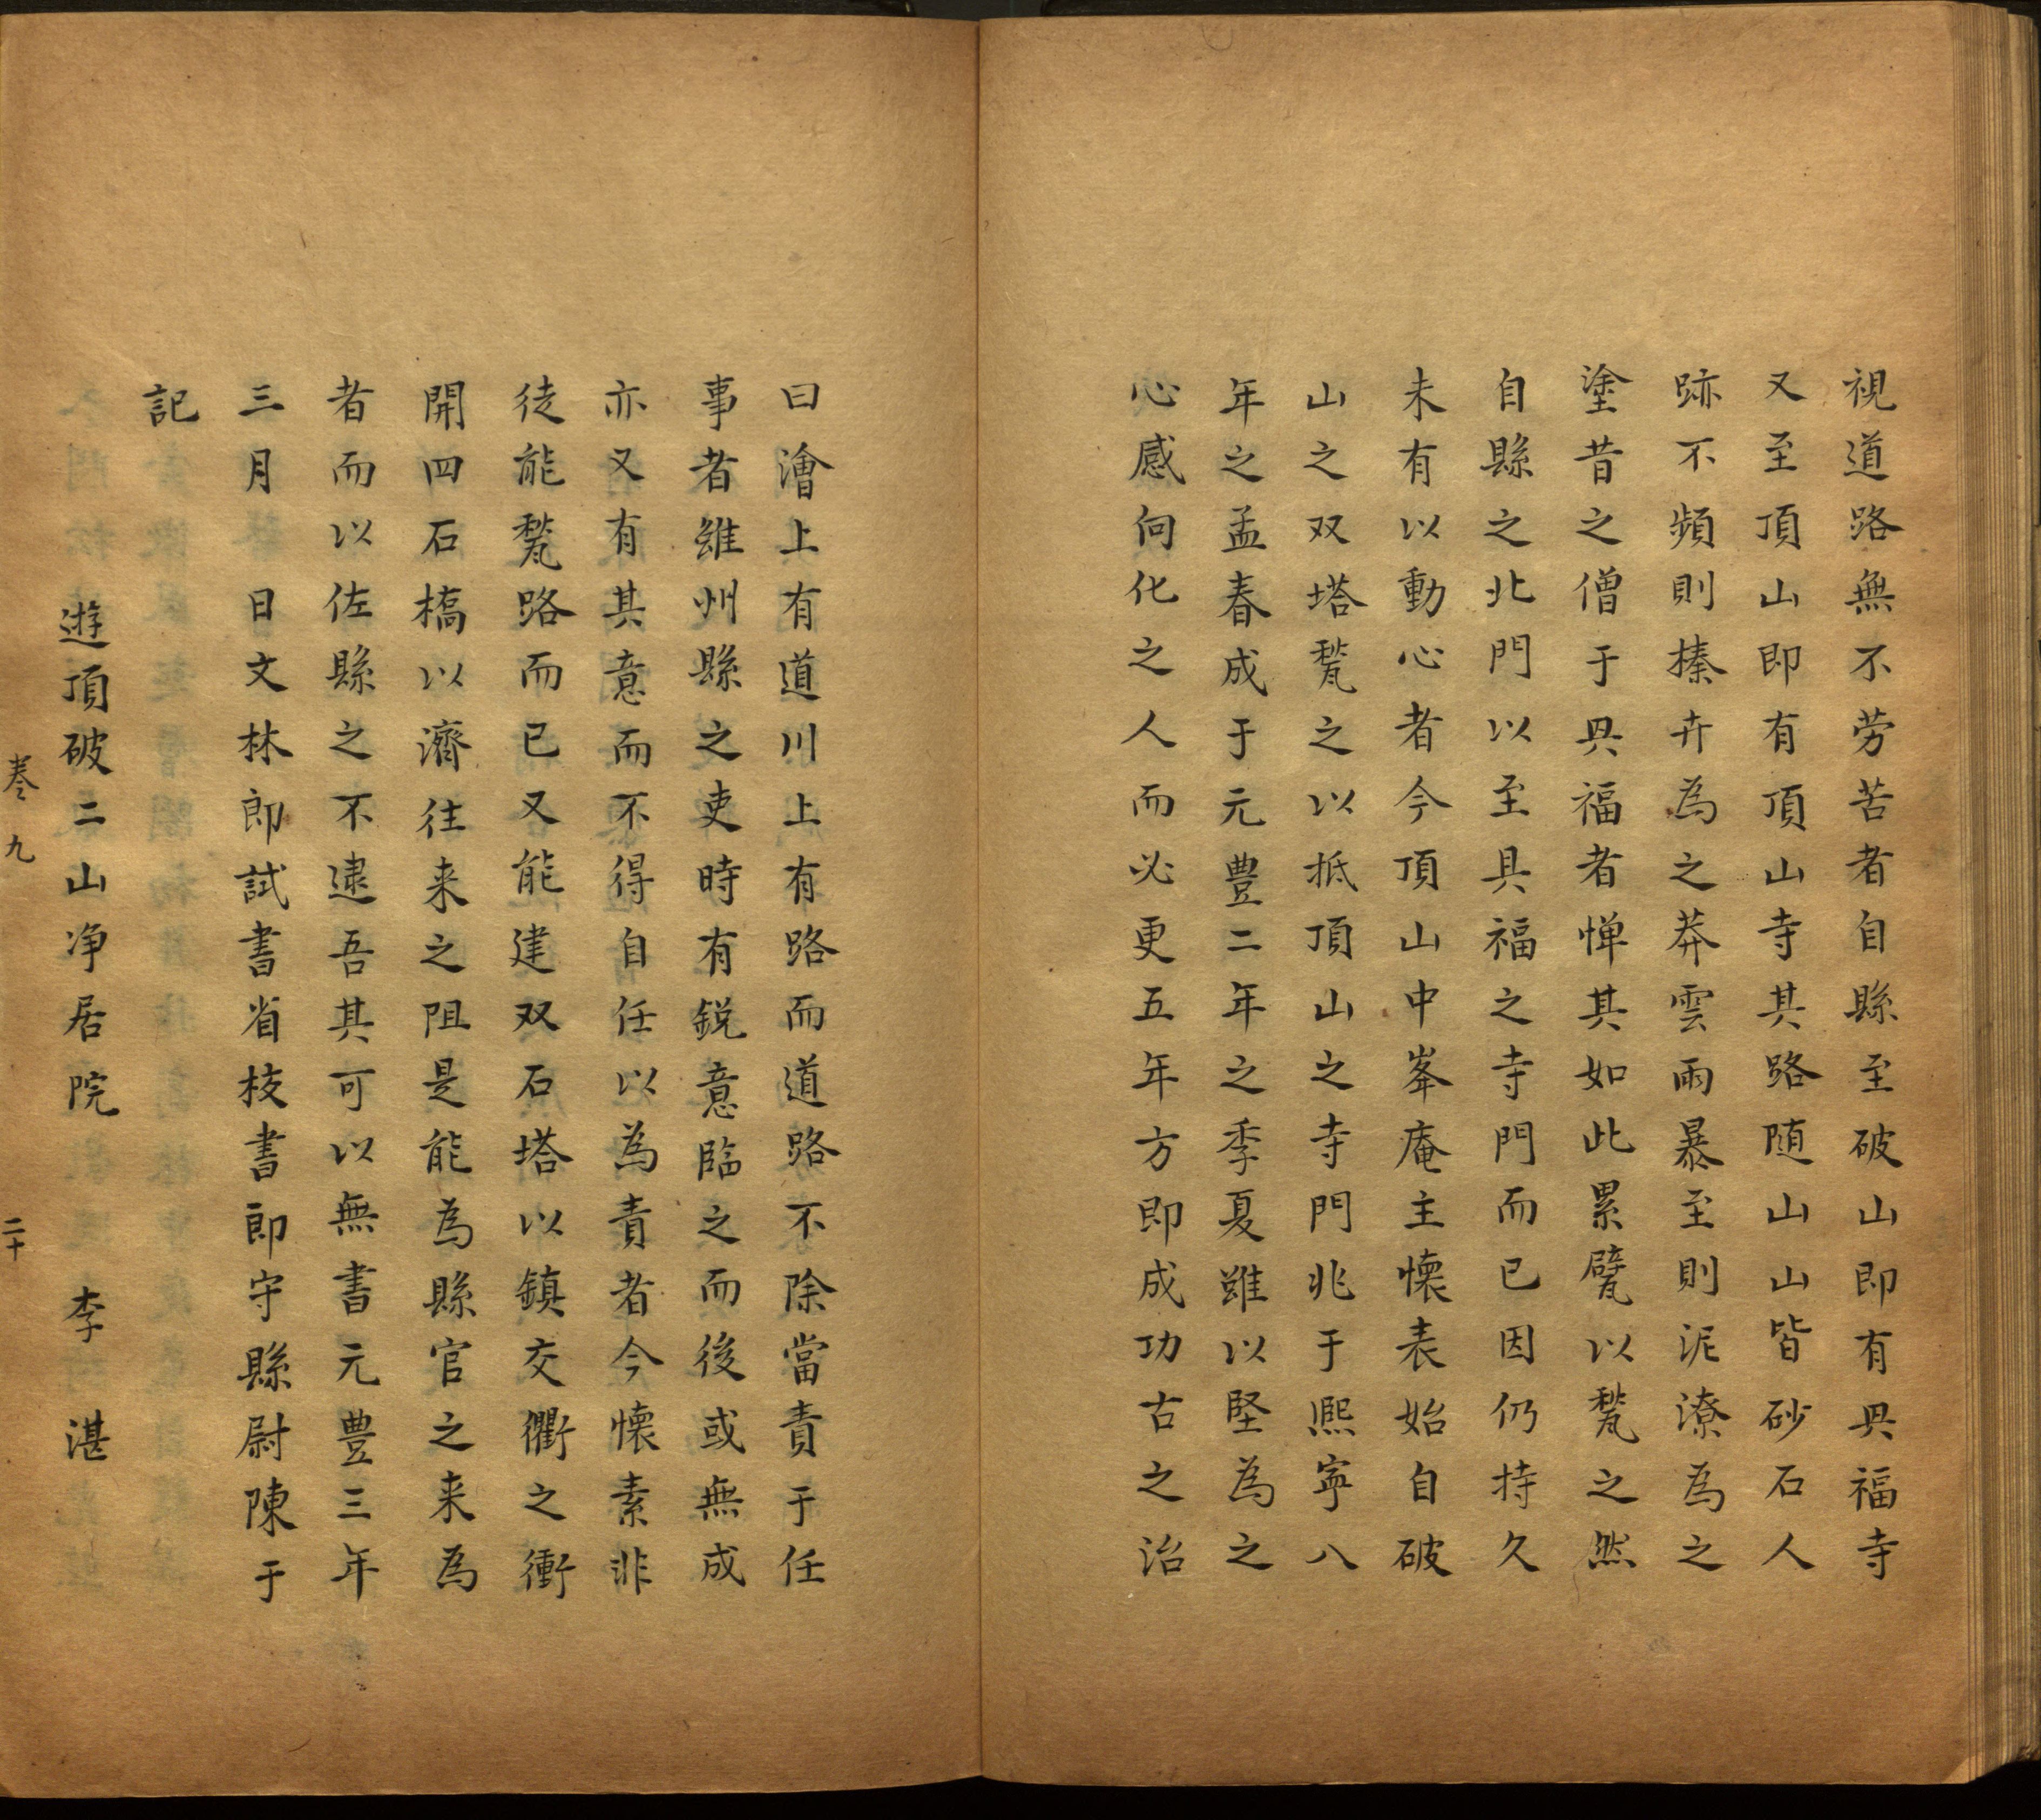 視道路無不劳苦者自縣至破山即有㒷福寺
又至頂山即有頂山寺其路随山山皆砂石人
跡不頻則榛卉為之莽雲雨暴至則泥潦為之
塗昔之僧于㒷福者惮其如此累甓以甃之然
自縣之北門以至㒷福之寺門而已因仍持久
未有以動心者今頂山中峯庵主懐表始自破
山之双塔甃之以抵頂山之寺門兆于熈寧八
年之孟春成于元豊二年之季夏雖以堅為之
心感向化之人而必更五年方即成功古之治
曰澮上有道川上有路而道路不除當責于任
事者雖州縣之吏時有鋭意臨之而後或無成
亦又有其意而不得自任以為責者今懐素非
徒能甃路而已又能建双石塔以鎮交衢之衝
開四石橋以濟往来之阻是能為縣官之来為
者而以佐縣之不逮吾其可以無書元豊三年
三月 日文林郎試書省校書郎守縣尉陳于
記
遊頂破二山净居院 李湛
卷九 二十